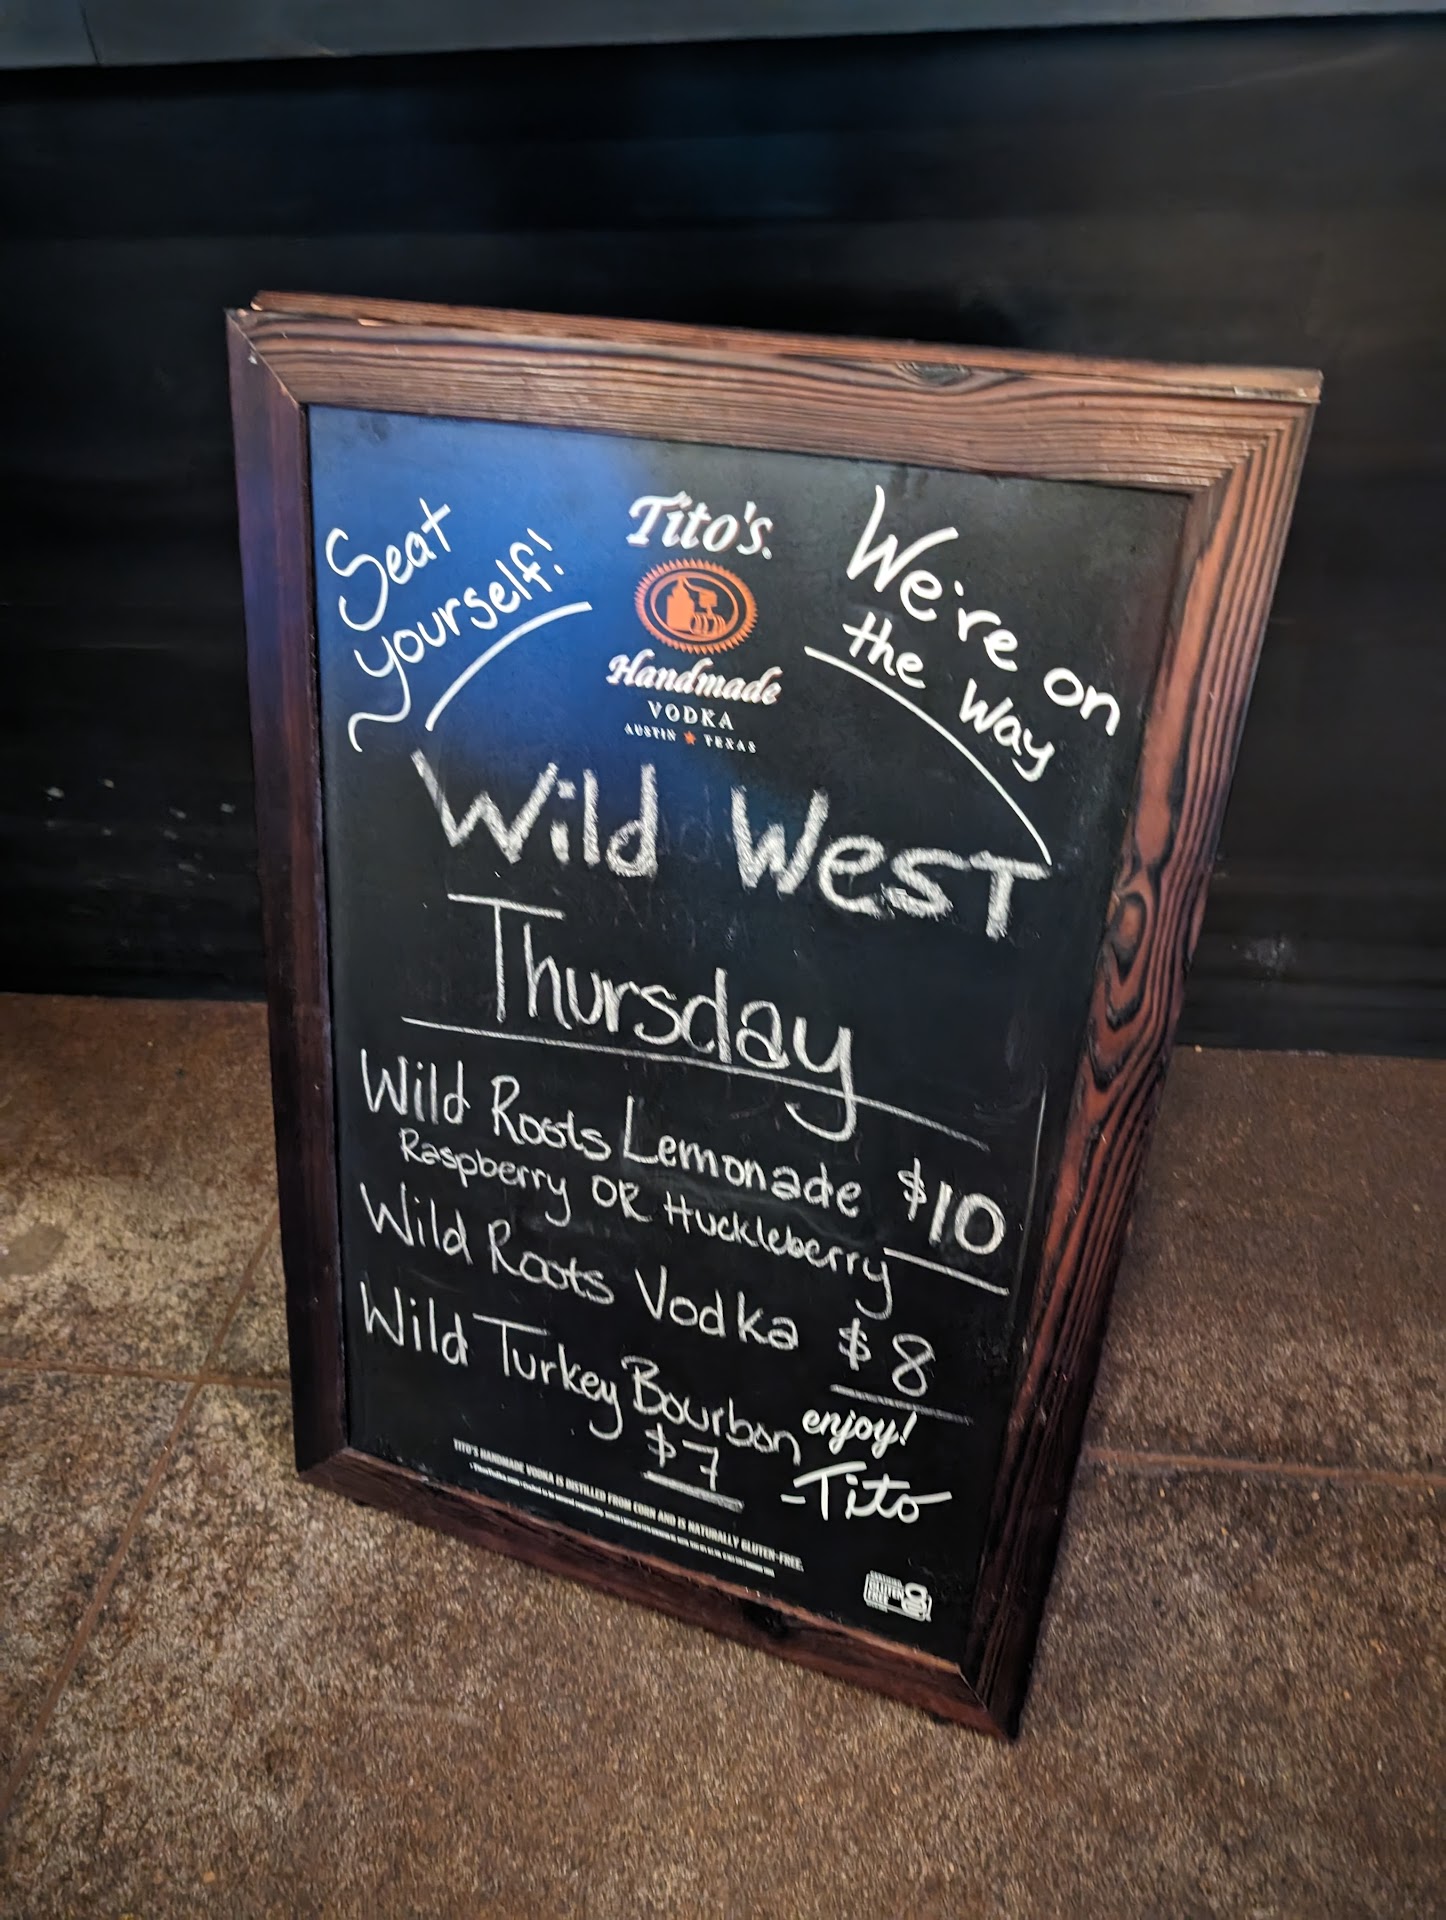 Seat
yourself!
Tito's
Handmade
VODKA
AUSTIN TEXAS
We're on
the way
Wild West
Thursday
Wild Roots Lemonade $10
Raspberry OR Huckleberry
Wild Roots Vodka $8
Wild Turkey Bourbon
$7
enjoy!
-Tito
TITO'S HANDMADE VODKA IS DISTILLED FROM CORN AND IS NATURALLY GLUTEN-FREE.
GLUTEN
FREE